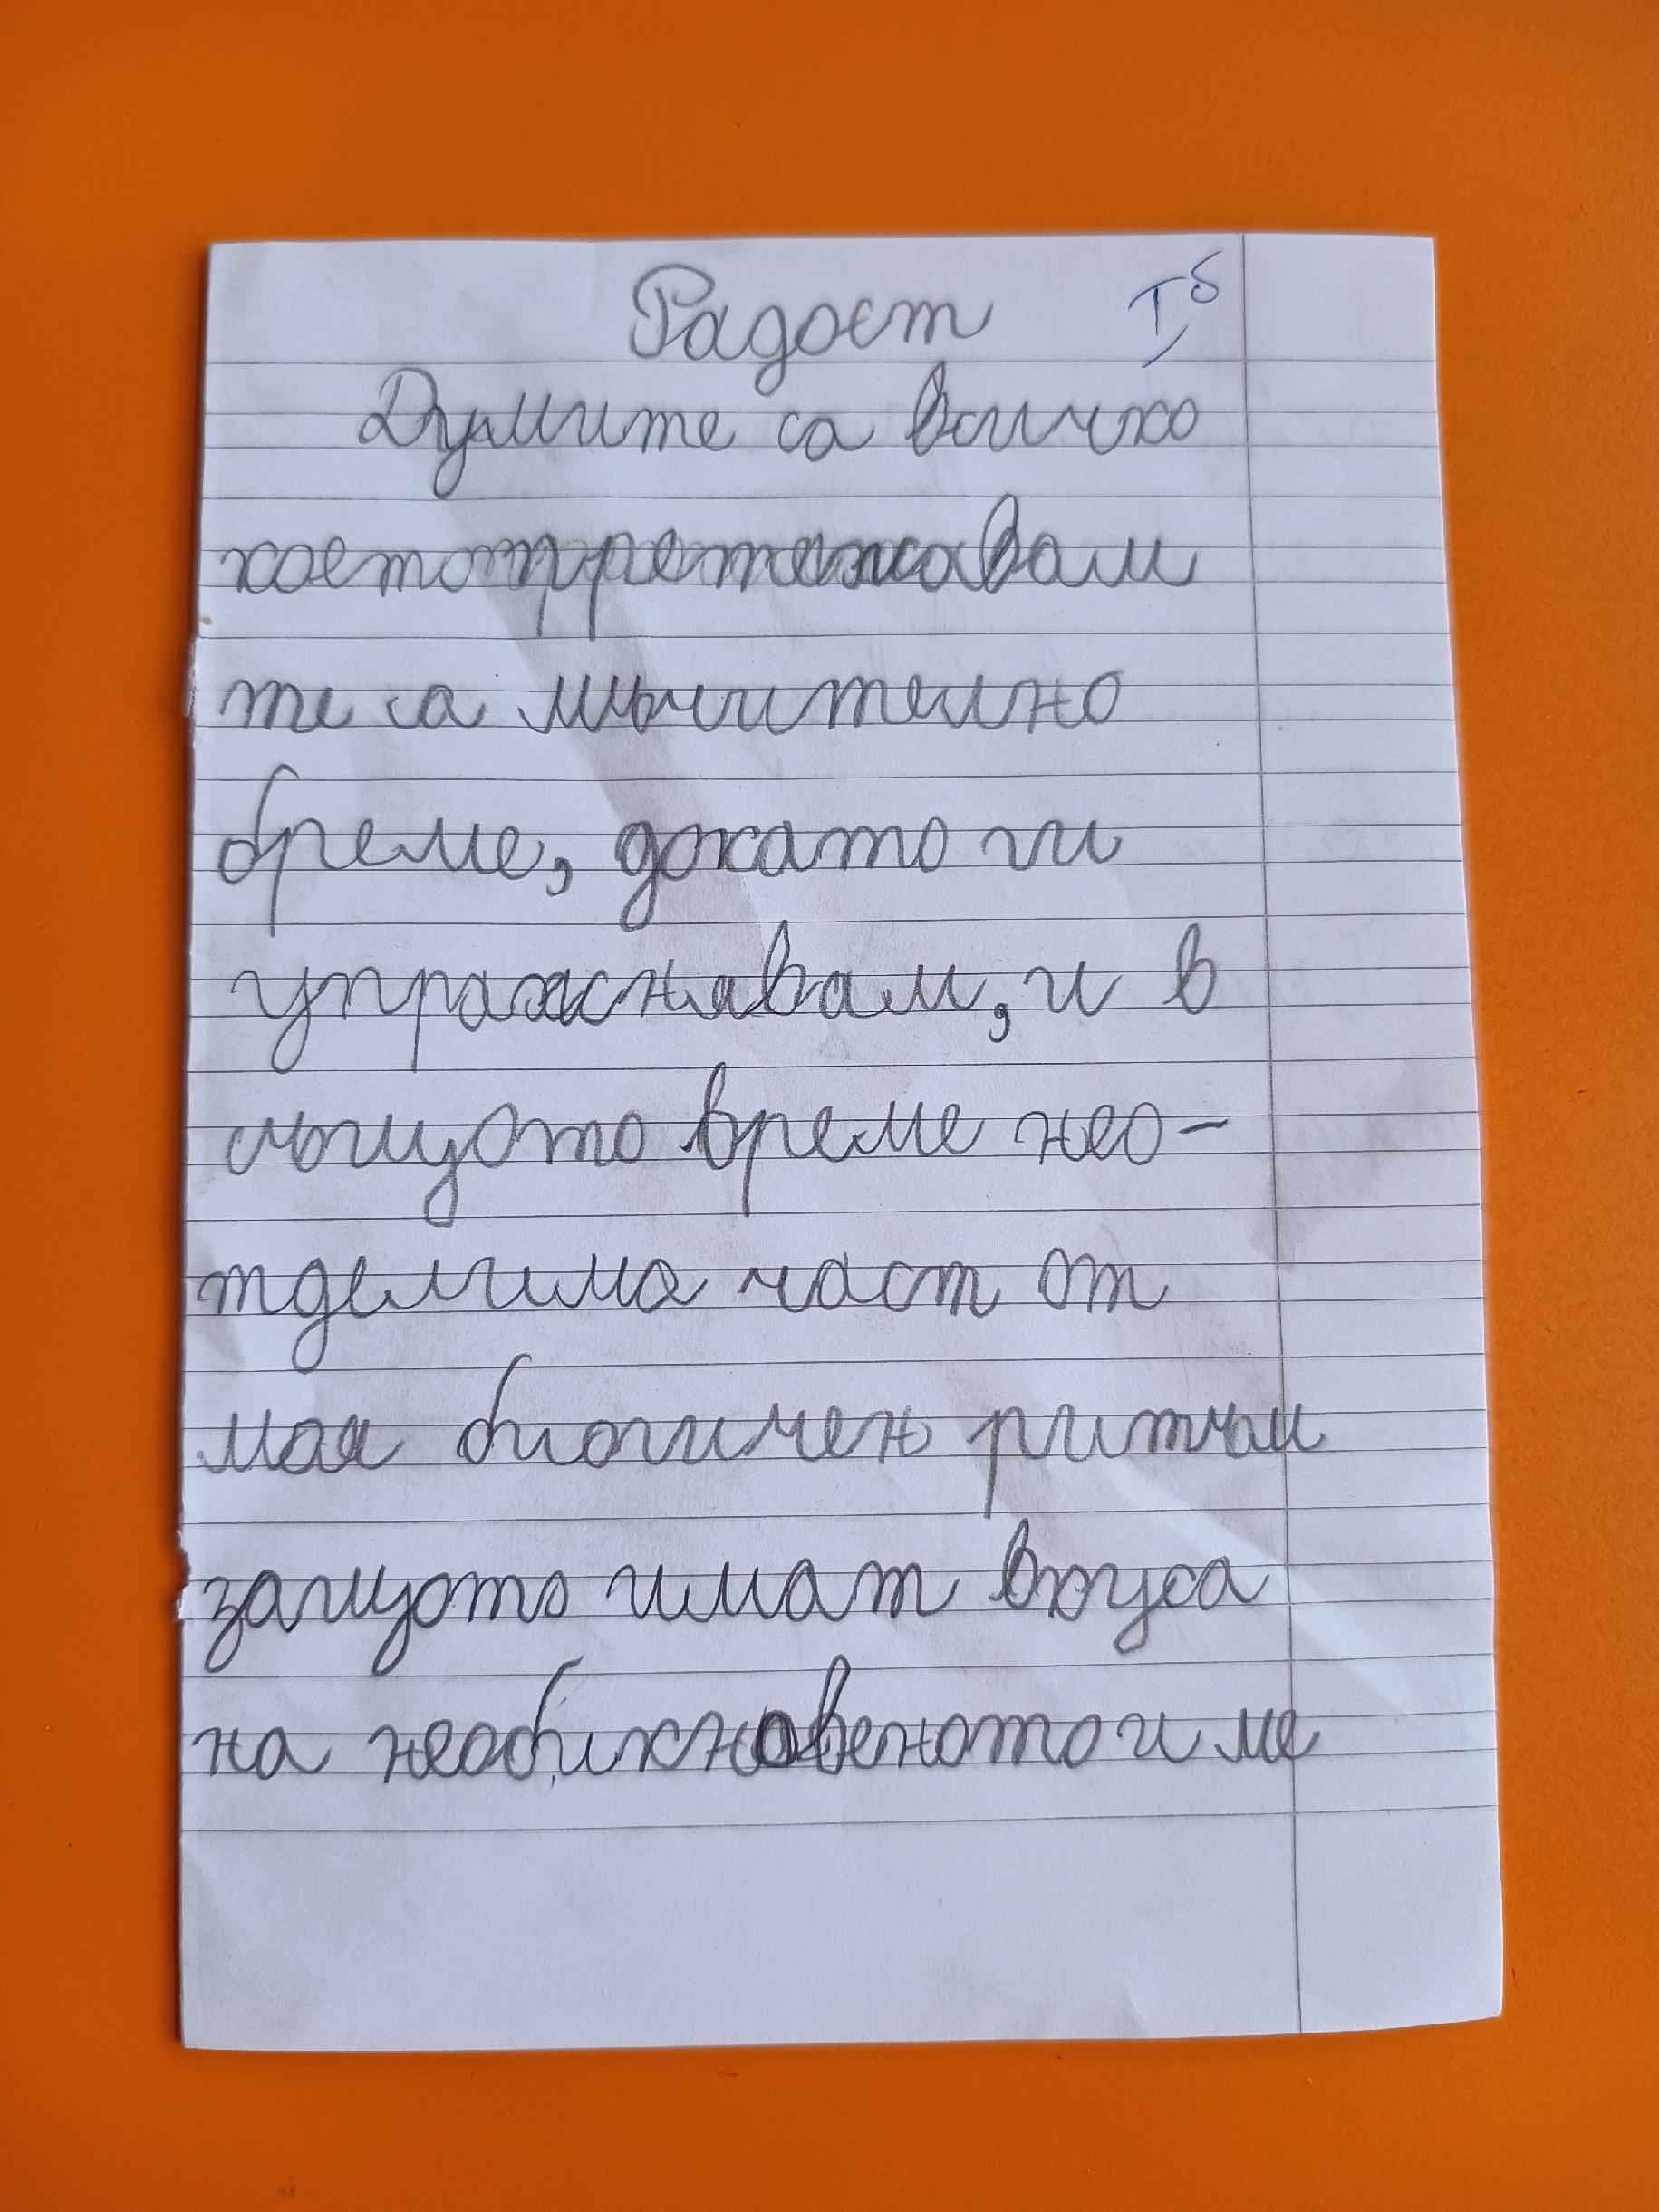 Радост Iб
Думите са всичко
което притежавам
те са мъчително
бреме, докато ги
упражнявам, и в
същото време нео-
тделима част от
моя биологичен ритъм
защото имат вкуса
на необикновеното и ме